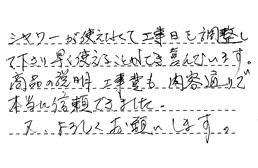 シャワーが使えなくて工事日を調整し
て下さり早く使えることができ喜んでいます。
商品の説明、工事費も内容通りで
本当に信頼できました。
又、よろしくお願いします。